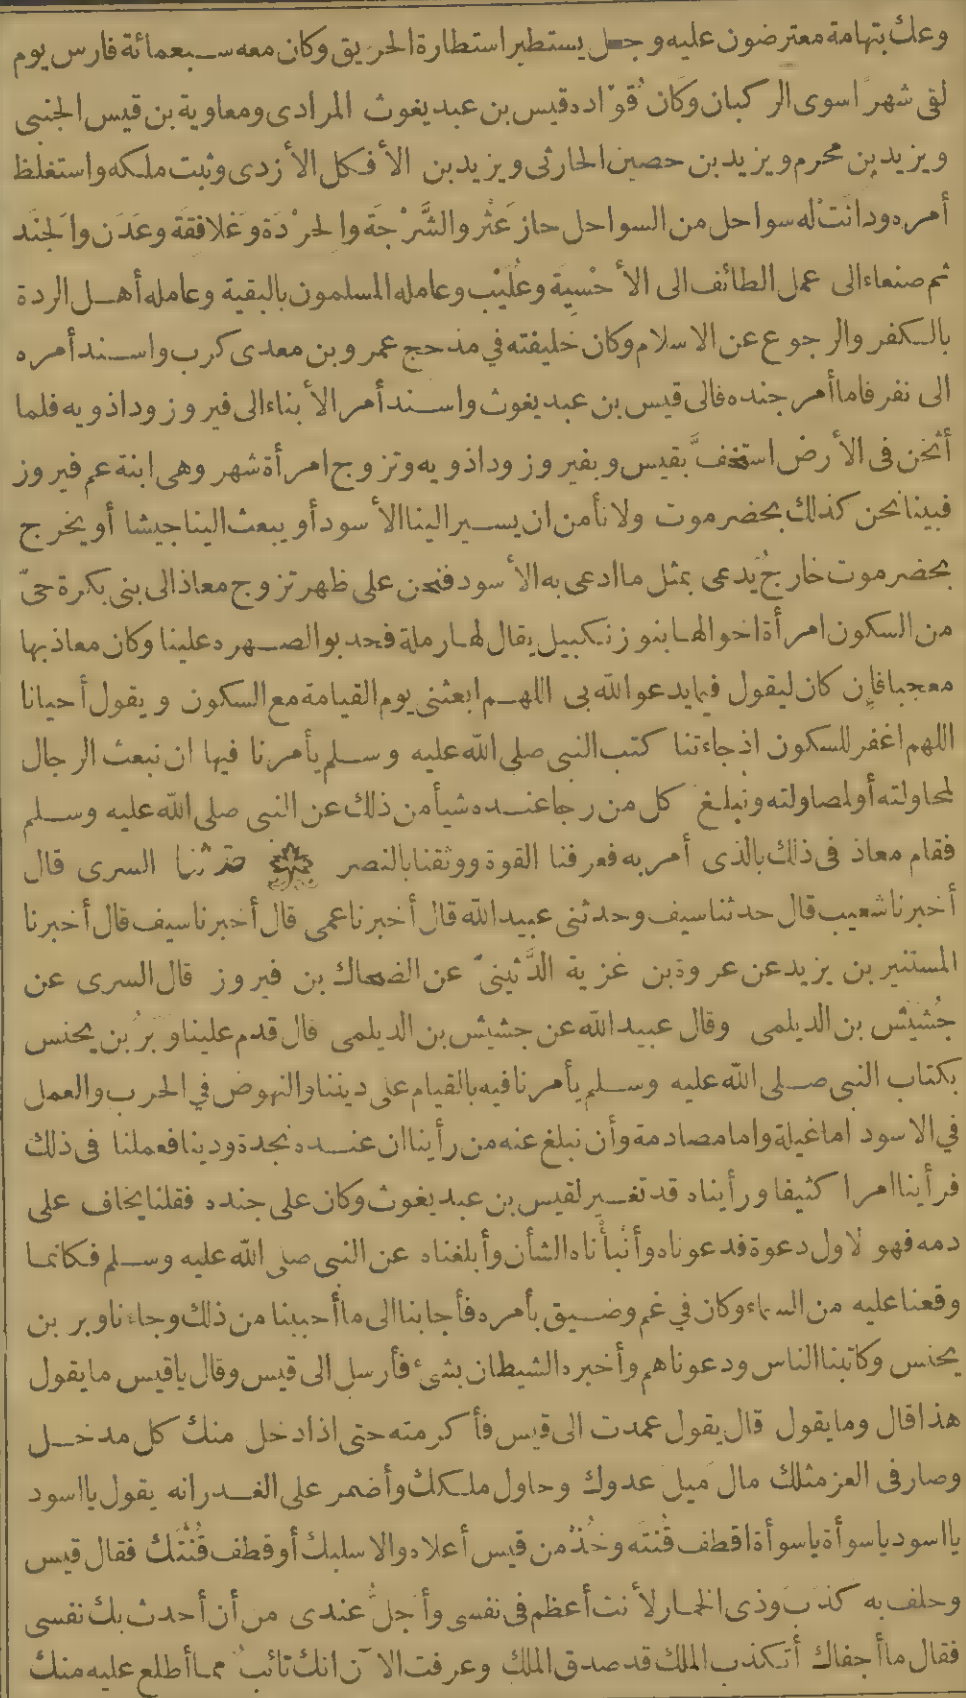 وعك بتهامة معترضون عليه وجعل يستطير استطارة الحريق وكان معه سبعمائة فارس يوم
لقى شهرا سوى الركبان وكان قوّاده قيس بن عبد يغوث المرادى ومعاوية بن قيس الجنبى
ويزيد بن محرم ويزيد بن حصين الحارثى ويزيد بن الأفكل الأزدى وثبت ملكه واستغلظ
أمره ودانَتْ له سواحل من السواحل حاز عَثْر والشَّرْجَة والحَرْدَة وغَلافقَة وعَدَن والجَنَد
ثم صنعاء الى عمل الطائف الى الأحْسِيَة وعُلَيْب وعامله المسلمون بالبقية وعامله أهل الردة
بالكفر والرجوع عن الاسلام وكان خليفته في مذحج عمرو بن معدى كرب واسند أمره
الى نفر فاما أمر جنده فالى قيس بن عبد يغوث واسند أمر الأبناء الى فيروز وداذويه فلما
أثخن فى الأرض استخفَّ بقيس وبفيروز وداذويه وتزوج امرأة شهر وهى ابنة عم فيروز
فبينا نحن كذلك بحضرموت ولا نأمن ان يسير الينا الأسود أو يبعث الينا جيشا أو يخرج
بحضرموت خارجُ يَدعى بمثل ما ادعى به الأسود فنحن على ظهر تزوج معاذ الى بنى بكرة حىّ
من السكون امرأة اخوالها بنو زنكبيل يقال لها رملة فحدبوا لصهره علينا وكان معاذ بها
معجبا فإن كان ليقول فيما يدعو الله بى اللهم ابعثنى يوم القيامة مع السكون ويقول أحيانا
اللهم اغفر للسكون اذ جاءتنا كتب النبى صلى الله عليه وسلم يأمرنا فيها ان نبعث الرجال
لمحاولته أو لمصاولته ونبلغ كل من رجا عنده شيأ من ذلك عن النبى صلى الله عليه وسلم
فقام معاذ فى ذلك بالذى أمر به فعرفنا القوة ووثقنا بالنصر حدثنا السرى قال
أخبرنا شعيب قال حدثنا سيف وحدثنى عبيد الله قال أخبرنا عمى قال أخبرنا سيف قال أخبرنا
المستنير بن يزيد عن عروة بن غزية الدَّثينىّ عن الضحاك بن فيروز قال السرى عن
جُشَيْش بن الديلمى وقال عبيد الله عن جشيش بن الديلمى قال قدم علينا وَبَرُ بن يحنس
بكتاب النبى صلى الله عليه وسلم يأمرنا فيه بالقيام على ديننا والنهوض في الحرب والعمل
في الاسود اما غيلة واما مصادمة وأن نبلغ عنه من رأينا ان عنده نجدة ودينا فعملنا فى ذلك
فرأينا امرا كثيفا ورأيناه قد تغير لقيس بن عبد يغوث وكان على جنده فقلنا يخاف على
دمه فهو لأول دعوة فدعوناه وأنْبَأْناه الشأن وأبلغناه عن النبى صلى الله عليه وسلم فكانما
وقعنا عليه من السماء وكان في غم وضيق بأمره فأجابنا الى ما أحببنا من ذلك وجاءنا وبر بن
يحنس وكاتبنا الناس ودعوناهم وأخبره الشيطان بشئ فأرسل الى قيس وقال ياقيس ما يقول
هذا قال وما يقول قال يقول عمدت الى قيس فأكرمته حتى اذا دخل منك كل مدخل
وصار فى العز مثلك مال مَيل عدوك وحاول ملكك وأضمر على الغدر انه يقول يا اسود
يا اسود يا سوأة يا سوأة اقطف قُنته وخُذْ من قيس أعلاه والا سلبك أو قطف قُنَّتَك فقال قيس
وحلف به كَذَبَ وذى الخمار لأنت أعظم فى نفسى وأجلُّ عندى من أن أحدث بك نفسى
فقال ما أجفاك أتكذب الملك قد صدق الملك وعرفت الآن انك تائبٌ مما أطلع عليه منك